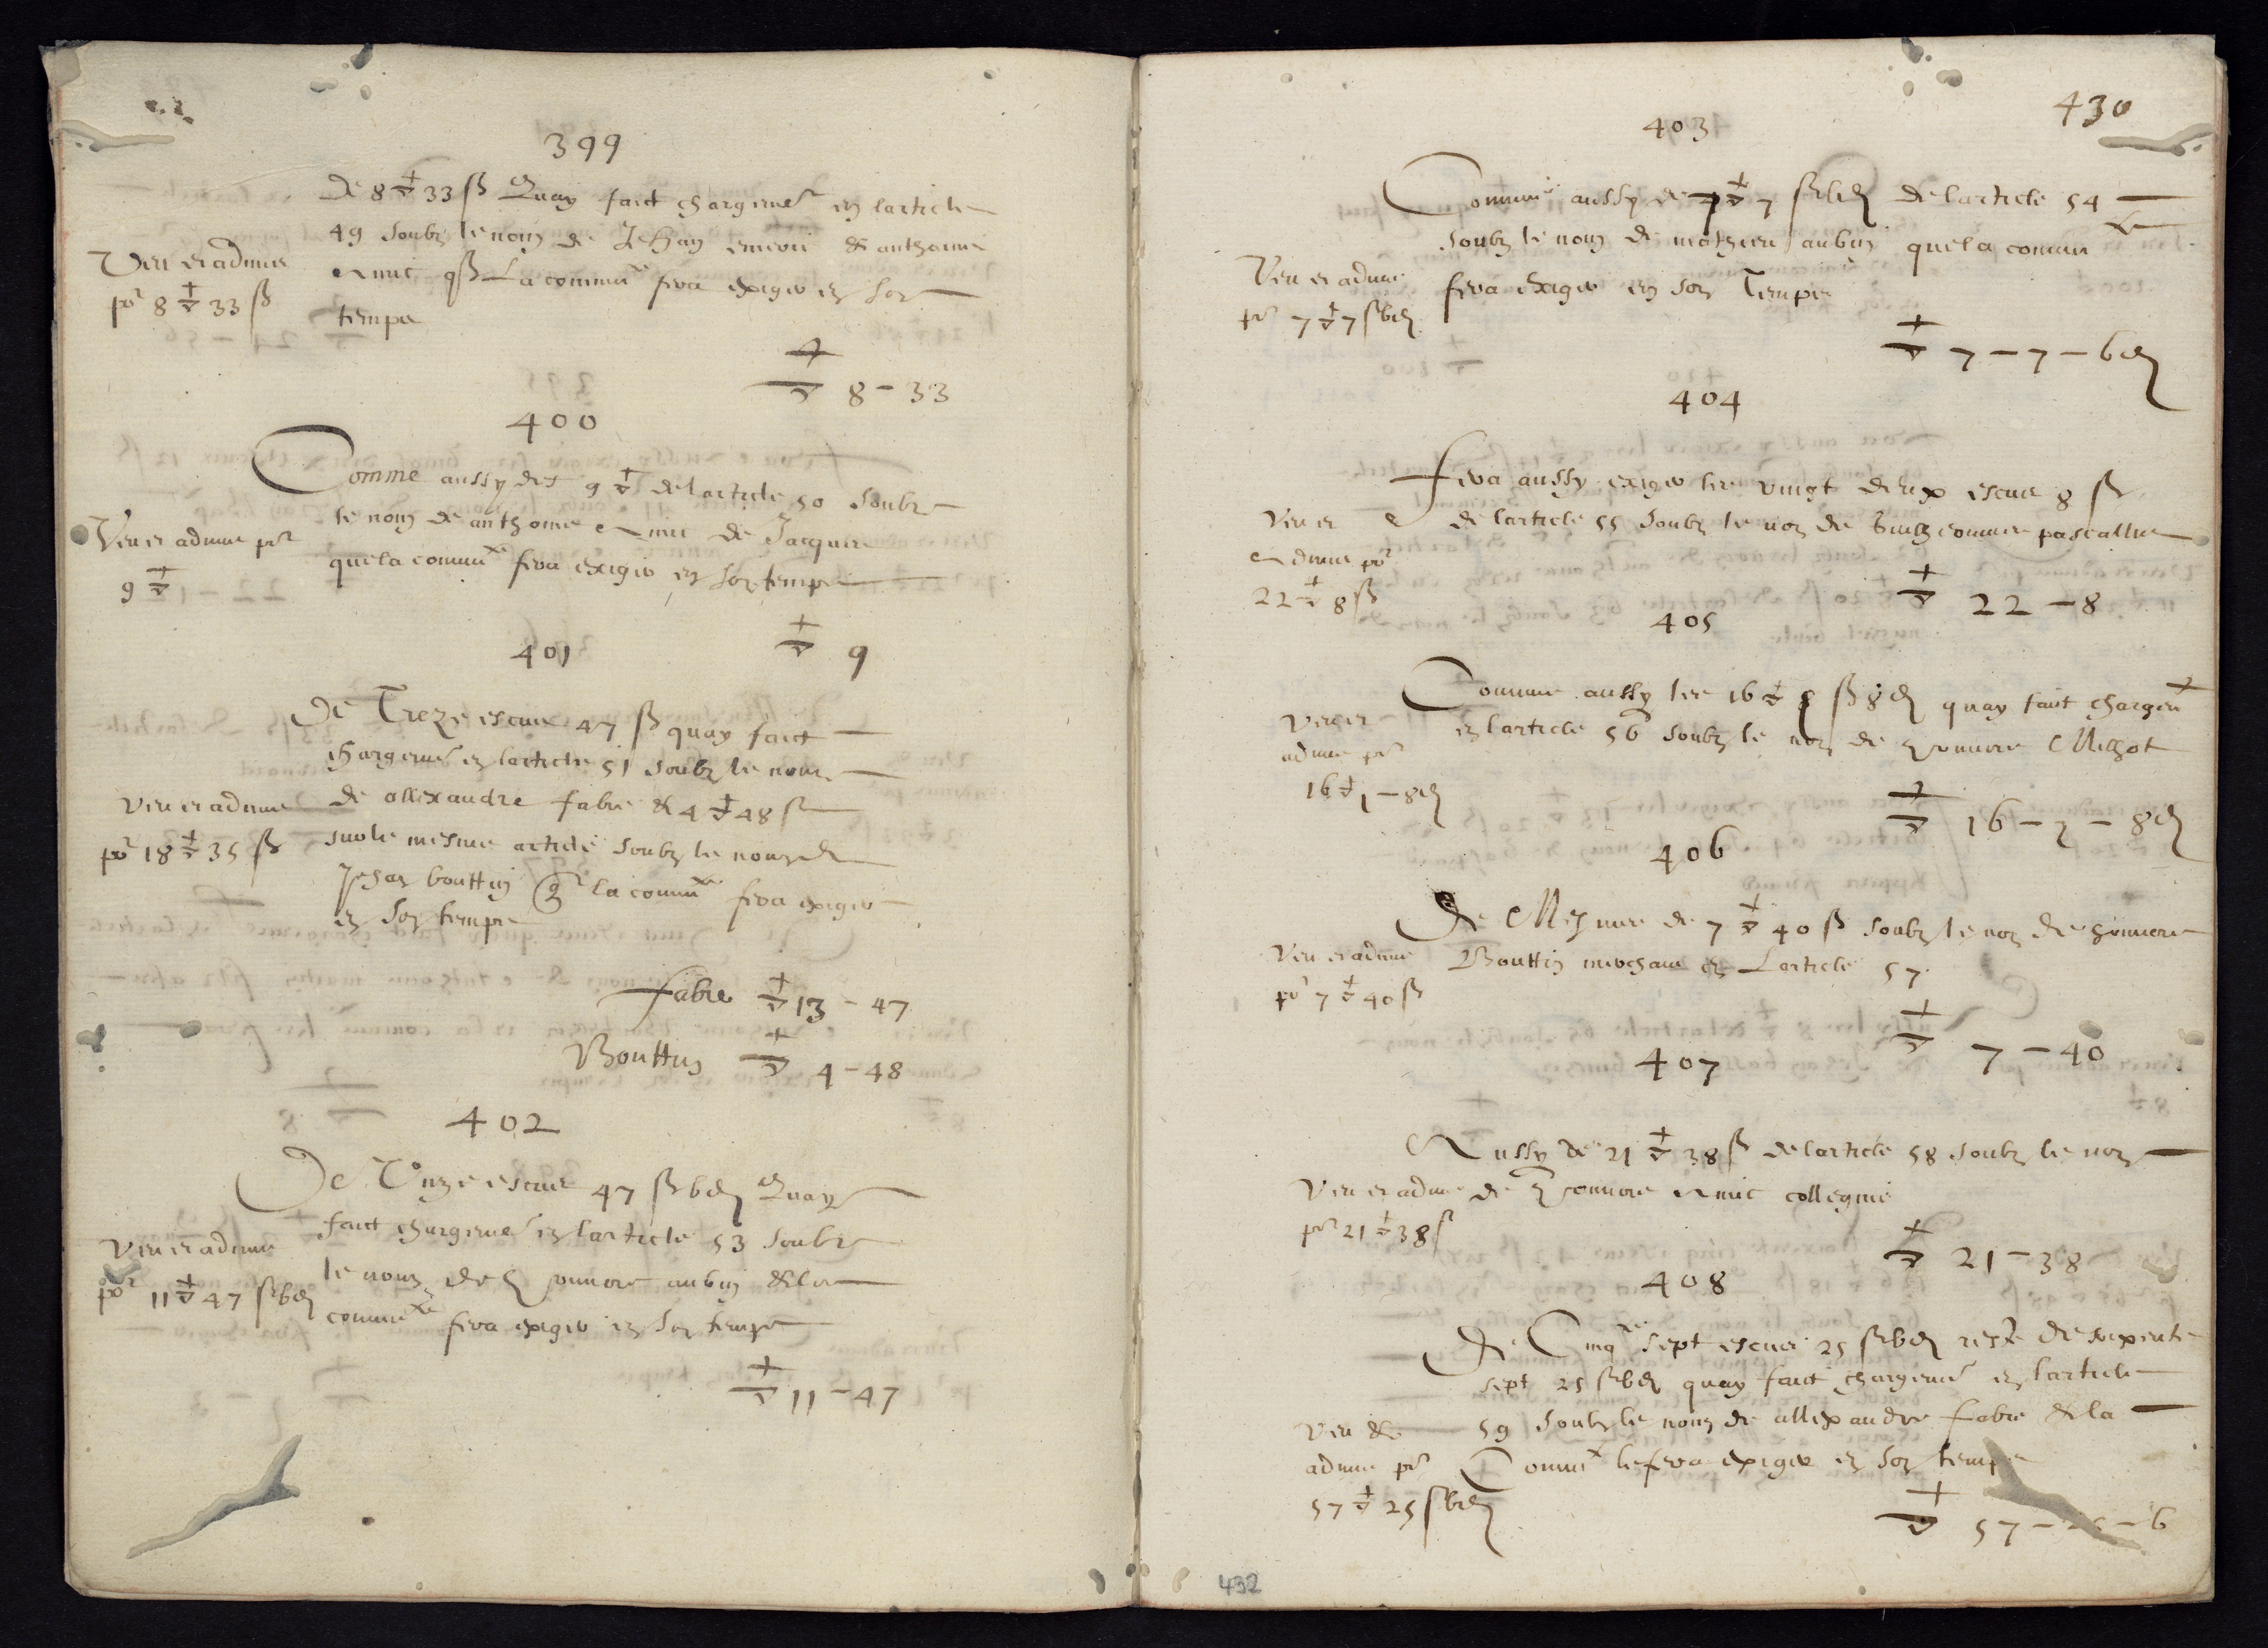 399
De 8 ▽ 33 ß Quay faict chargemt en larticle
49 soubz le nom de Jehan & anthoine
Amic qß La commute fera exiger en son
temps
Veu et admis
por 8 ▽ 33 ß
▽ 8 - 33
400
Comme aussy des 9 ▽ de larticle 50 soubz
le nom de anthoine Amic de Jacques
que la commute fera exiger en son temps
Veu et admis por
9 ▽
▽ 9
401
De Treze escus 47 ß quay faict
chargemt en larticle 51 soubz le nom
de allixandre fabre & 4 ▽ 48 ß
sur le mesme article soubz le nom de
Jehan bouttin que la commute fera exiger
en son temps
Veu et admis
por 18 ▽ 35 ß
fabre ▽ 13 - 47
Bouttin ▽ 4 - 48
402
De Unze escus 47 ß 6 d Quay
faict chargemt en larticle 53 soubz
le nom de honnore aubin & la
commute fera exiger en son temps
Veu et admis
por 11 ▽ 47 ß 6 d
▽ 11 - 47
430
403
Comme aussy de 7 ▽ 7 ß 6 d de larticle 54
soubz le nom de mathieu aubin que la commute
fera exiger en son Temps
Veu et admis
por 7 ▽ 7 ß 6 d
▽ 7 - 7 - 6 d
404
fera aussy exiger les vingt deux escus 8 ß
de larticle 55 soubz le nom de pascallis
Veu et
admis por
22 ▽ 8 ß
▽ 22 - 8
405
Comme aussy les 16 ▽ ß 8 d quay faict chargemt
en larticle 56 soubz le nom de honnore Milhot
Veu et
admis por
16 ▽ 1 - 8 d
▽ 16 - 1 - 8 d
406
De Mesmes de 7 ▽ 40 ß soubz le nom de honnore
Bouttin merchant en Larticle 57
Veu et admis
por 7 ▽ 40 ß
▽ 7 - 40
407
Aussy de 21 ▽ 38 ß de larticle 58 soubz le nom
de honnore Amic collegnie
Veu et admis
por 21 ▽ 38 ß
▽ 21 - 38
408
De Cinqte sept escus 25 ß 6 d reste de sixente
sept 25 ß 6 d quay faict chargemt en larticle
59 soubz le nom de allixandre fabre & la
Commte le fera exiger en son temps
Veu &
admis por
57 ▽ 25 ß 6 d
▽ 57 - 25 - 6
432